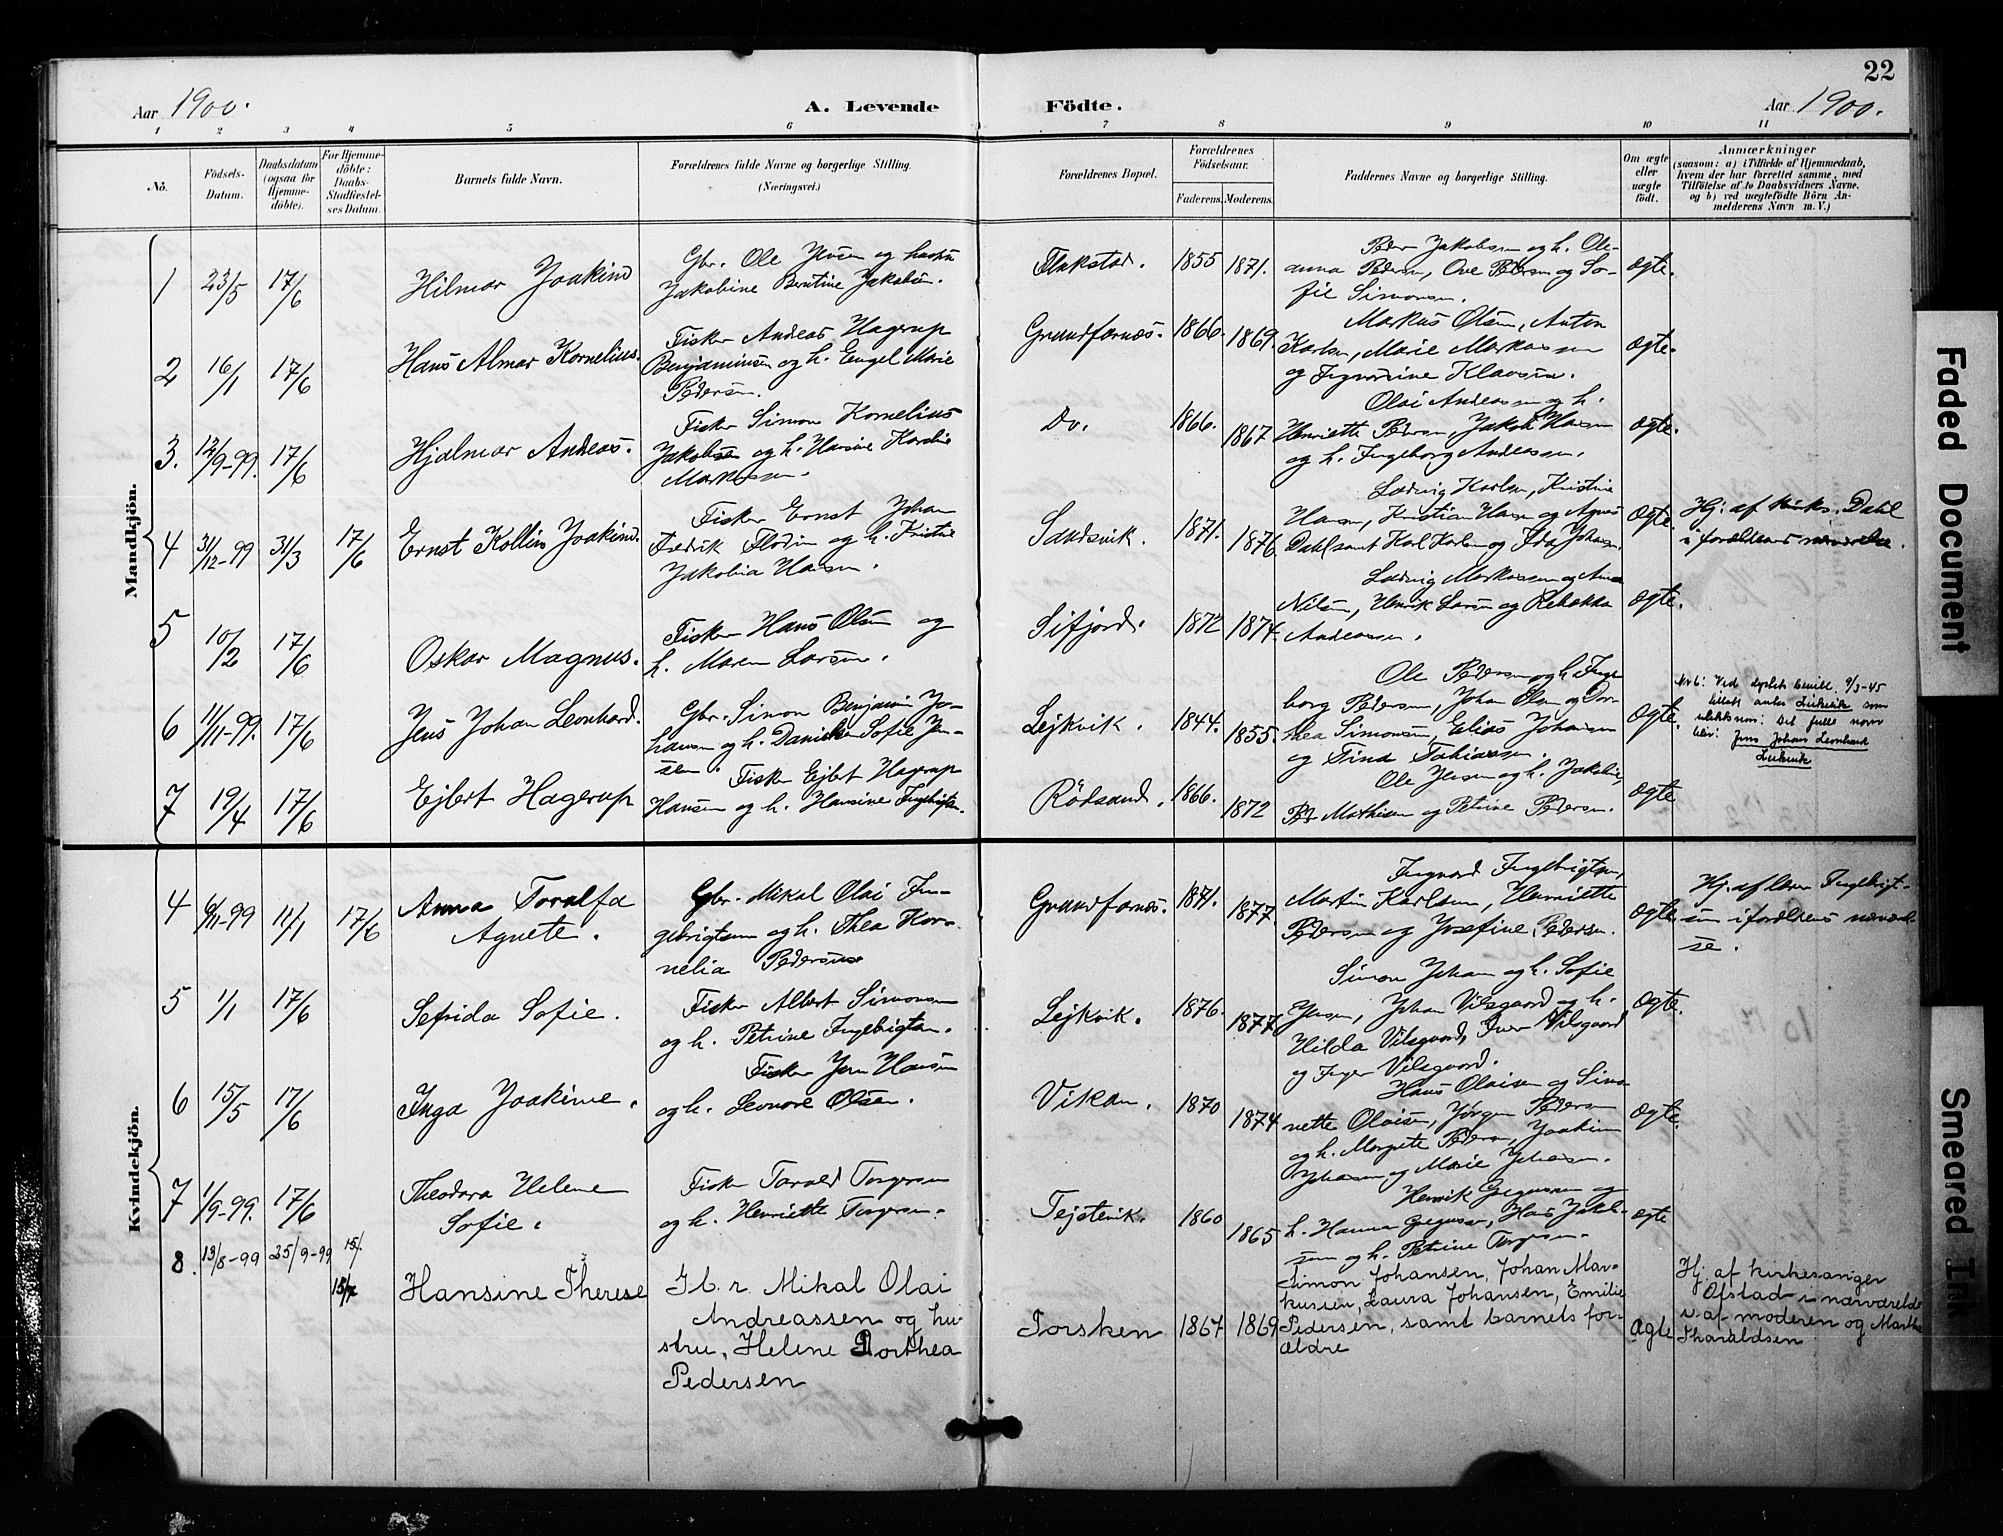 22
Aar 1900.
A. Levende Födte.
Aar 1900.
1 2 3 4 5 6 7 8 9 10 11
No.
Födsels-
Datum.
Daabsdatum
(ogsaa for
Hjemme-
döbte).
For Hjemme-
döbte:
Daabs-
Stadfæstel-
ses Datum.
Barnets fulde Navn.
Forældrenes fulde Navne og borgerlige Stilling.
(Næringsvei.)
Forældrenes Bopæl.
Forældrenes
Födselsaar.
Faderens. Moderens.
Faddernes Navne og borgerlige Stilling.
Om ægte
eller
uægte
födt.
Anmærkninger
(saasom: a) i Tilfælde af Hjemmedaab,
hvem der har forrettet samme, med
Tilföielse af to Daabsvidners Navne,
og b) ved uægtefödte Börn An-
melderens Navn m. V.)
Mandkjön.
1 23/5 17/6
Hilmar Joakim
Gbr. Ole Jensen og hustru
Jakobine Berntine Jakobsen.
Flakstad. 1855 1871.
Peder Jakobsen og h. Ole-
anna Pedersen, Ove Pedersen og So-
fie Simonsen.
Ægte.
2 16/1 17/6
Hans Almar Kornelius.
Fisker Andreas Hagerup
Benjaminsen og h. Engel Marie
Pedersen.
Grundfarnes. 1866. 1869.
Markus Olsen, Anton
Karlsen, Marie Markussen
og Ingvarine Klausen.
Ægte.
3. 12/9-99. 17/6
Hjalmar Andreas.
Fisker Simon Kornelius
Jakobsen og h. Hansine Kordie
Markussen.
Do. 1866. 1867
Olai Andreassen og h.
Henriette Pedersen, Jakob Hansen
og h. Ingeborg Andreassen.
Ægte.
4 31/12-99 31/3 17/6
Ernst Kollin Joakim.
Fisker Ernst Johan
Fredrik Flodin og h. Kristine
Jakobia Hansen.
Sandsvik. 1871. 1876
Ludvig Karlsen, Kristine
Hansen, Kristian Hansen og Agnes
Dahl samt Karl Karlsen og Ida Johansen.
Ægte.
Hj. af kirks. Dahl
i forældrenes nærværelse.
5 10/2 17/6
Oskar Magnus.
Fisker Hans Olsen og
h. Maren Larsen.
Sifjord. 1872 1874.
Ludvig Markussen og Anna
Nilsen, Henrik Larsen og Rebekka
Andreassen.
Ægte.
6 11/11-99. 17/6
Jens Johan Leonhard.
Gbr. Simon Benjamin Jo-
hansen og h. Danielle Sofie Jen-
sen.
Lejkvik. 1844. 1855.
Ole Pedersen og h. Inge-
borg Pedersen, Johan Olsen og Dor-
thea Simonsen, Elias Johansen
og Trine Tobiassen.
Ægte.
Nr 6: Ved fylkets bevill. 9/3-45
tillatt antas Leikvik som
slektsnavn: Det fulle navn
blir: Jens Johan Leonhard
Leikvik
7 19/4 17/6
Ejlert Hagerup
Fisker Ejlert Hagerup
Hansen og h. Hansine Ingebrigtsen.
Rödsand. 1866. 1872
Ole Jensen og h. Jakobine,
Per Mathisen og Petrine Pedersen.
Ægte
Kvindekjön.
4 6/11-99 11/1 17/6
Anna Toralfa
Agnete.
Gbr. Mikal Olai In-
gebrigtsen og h. Thea Kor-
nelia Pedersen
Grundfarnes. 1871. 1877.
Ingvard Ingebrigtsen,
Martin Karlsen, Henriette
Pedersen og Josefine Pedersen.
Ægte.
Hj. af lærer Ingebrigt-
sen i forældrenes nærværel-
se.
5 1/1 17/6
Sefrida Sofie.
Fisker Albert Simonsen
og h. Petrine Ingebrigtsen.
Lejkvik. 1876. 1877.
Simon Johan og h. Sofie
Jensen, Johan Vilsgaard og h.
Hilda Vilsgaard, Iver Vilsgaard
og Inger Vilsgaard.
Ægte.
6 15/5 17/6
Inga Joakime.
Fisker Jens Hansen
og h. Leonore Olsen.
Vikan. 1870 1874
Hans Olaisen og Simo-
nette Olaisen, Jörgen Pedersen
og h. Margrete Pedersen, Joakim
Johansen og Marie Johansen.
Ægte.
7 1/9-99. 17/6
Theodora Helene
Sofie.
Fisker Tarald Torgersen
og h. Henriette Torgersen.
Tejstevik. 1860 1865
Henrik Gregusen og
h. Hanna Gregusen, Hans Jakob-
sen og h. Petrine Torgersen.
Ægte
8. 13/8-99 25/9-99 15/
15/7
Hansine Therese
Gb. r Mikal Olai
Andreassen og hu-
stru, Helene Dorthea
Pedersen
Torsken 1867 1869
Simon Johansen, Johan Mar-
kussen, Laura Johansen, Emilie
Pedersen, samt barnets for-
ældre
Ægte
Hj. af kirkesanger
Ofstad i nærværelde
af moderen og Martha
Tharaldsen
Faded Document
Smeared Ink